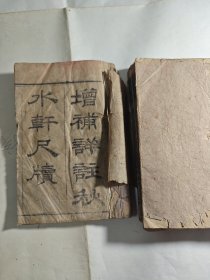 增補詳註秋
水軒尺牘